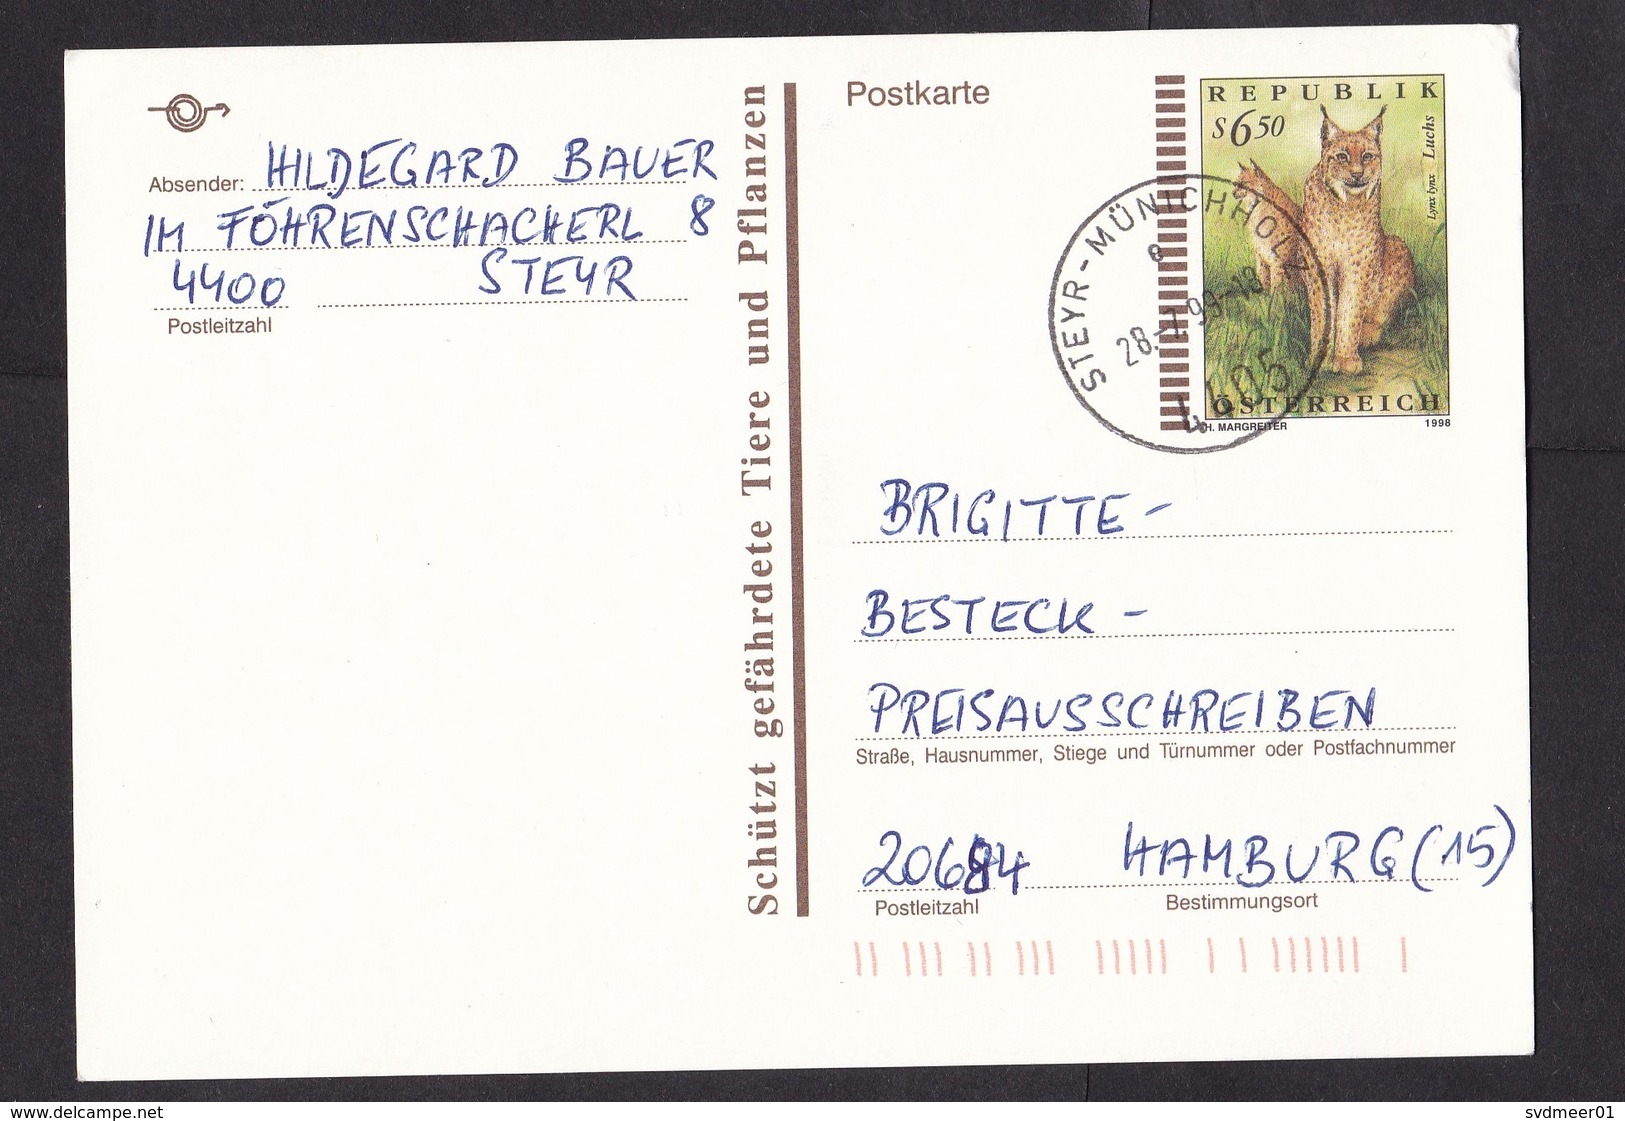 Absender: HILDEGARD BAUER
IM FÖHRENSCHACHERL 8
4400 STEYR
Postleitzahl
Schützt gefährdete Tiere und Pflanzen
Postkarte
REPUBLIK
S 650
Lynx lynx Luchs
ÖSTERREICH
H. MARGREITER 1998
STEYR-MÜNICHHOLZ
e
28.-7.99-18
4405
BRIGITTE-
BESTECK-
PREISAUSSCHREIBEN
Straße, Hausnummer, Stiege und Türnummer oder Postfachnummer
20684 HAMBURG (15)
Postleitzahl Bestimmungsort
delcampe.net
svdmeer01